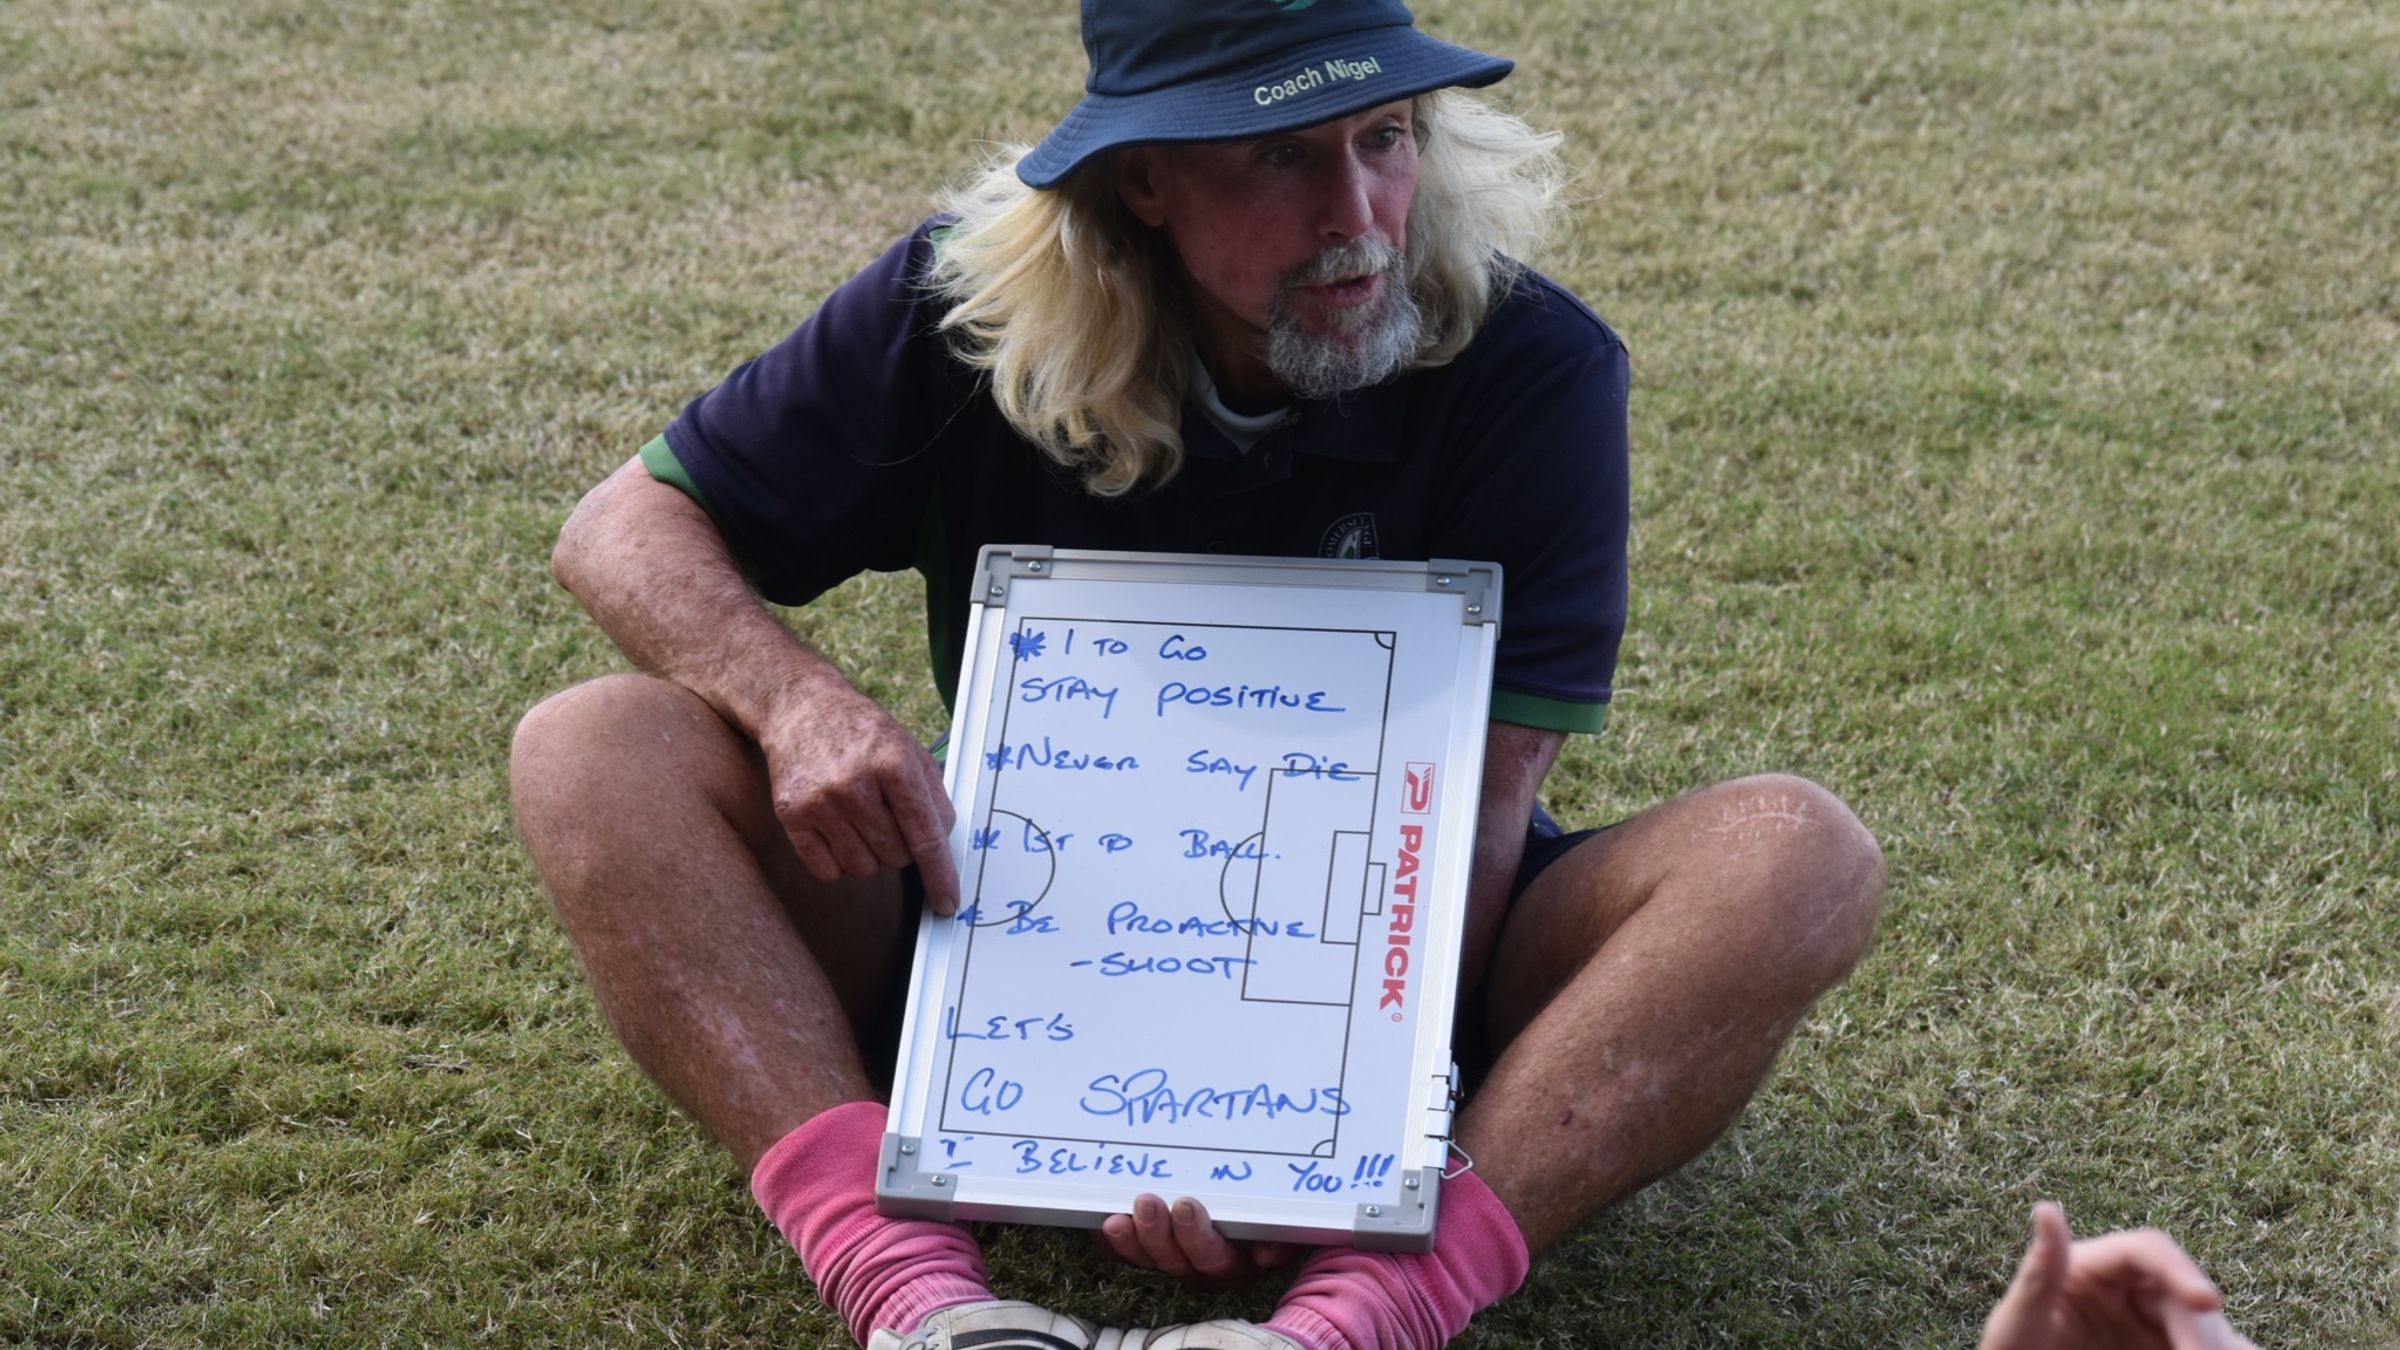 Coach Nigel
* 1 TO GO
STAY POSITIVE
* NEVER SAY DIE
* 1ST TO BALL.
* BE PROACTIVE
- SHOOT
LET'S
GO SPARTANS
I BELIEVE IN YOU!!!
PATRICK®